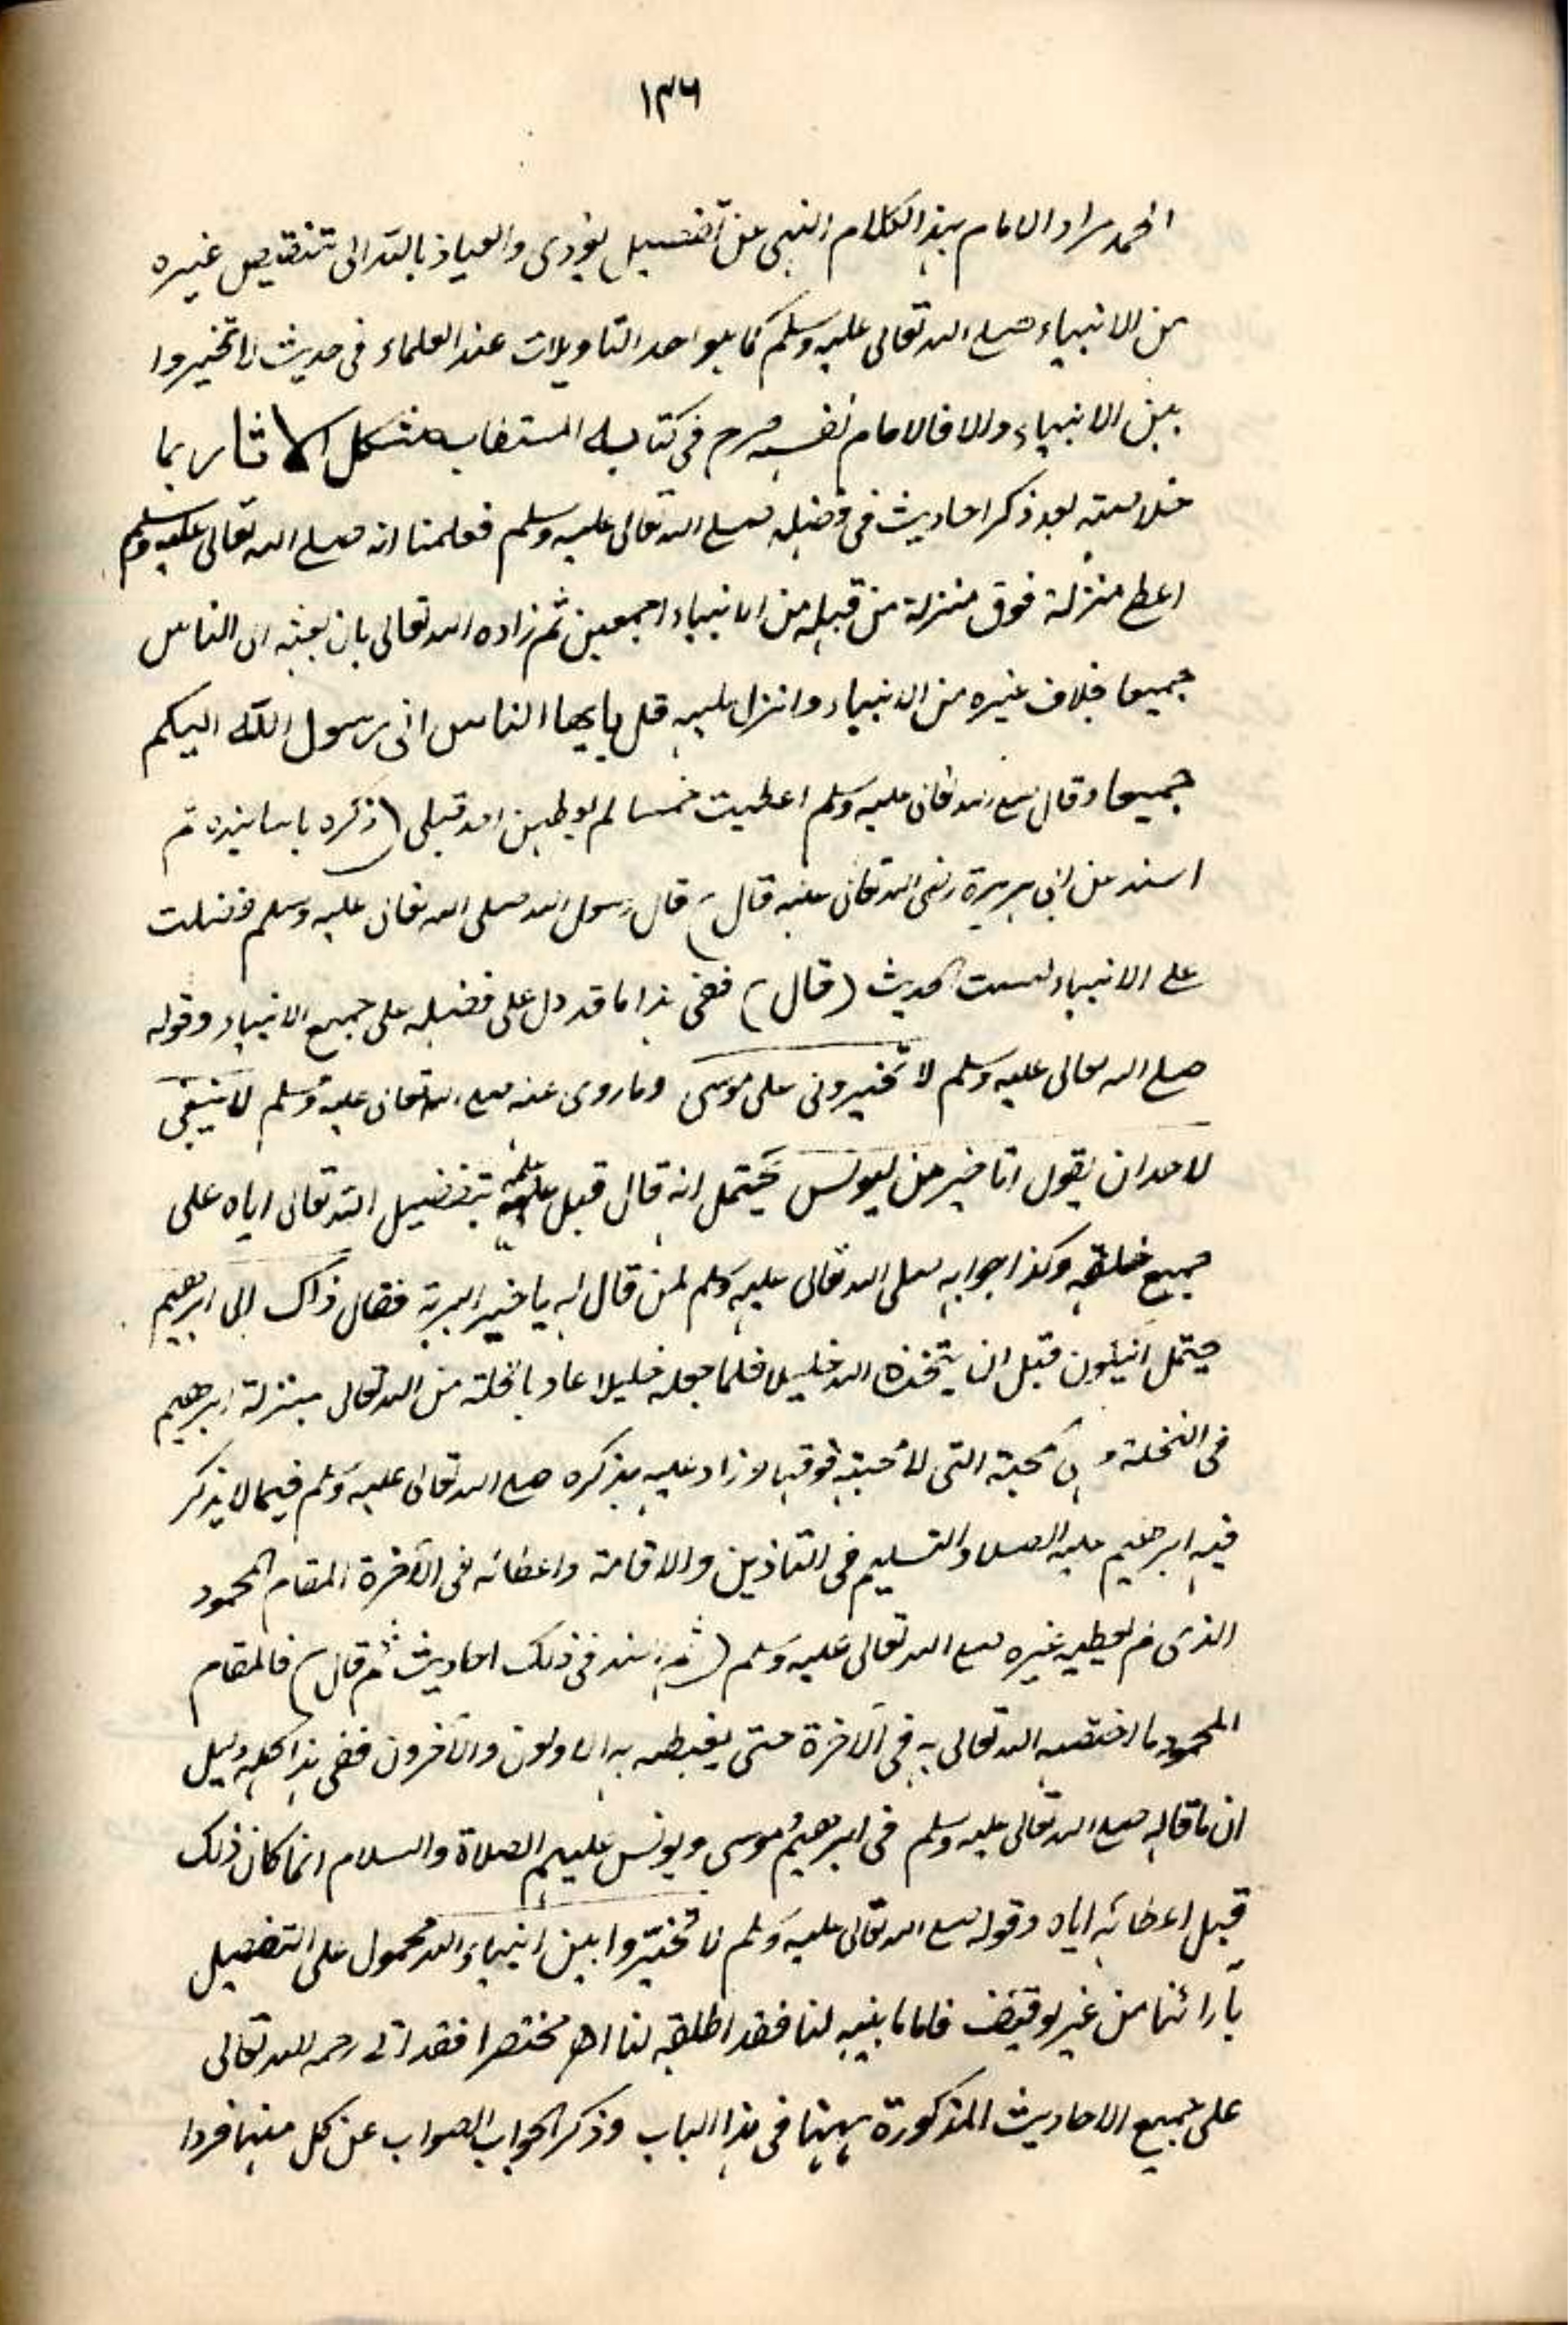 ١٣٦
الحمد مراد الامام بهذا الكلام النهى عن تفضيل يؤدى والعياذ بالله الى تنقيص غيره
من الانبياء صلى الله تعالى عليه وسلم كما هو احد التاويلات عند العلماء فى حديث لا تخيروا
بين الانبياء والا فالامام نفسه صرح فى كتابه المستطاب مشكل الاثار بما
خلاصته بعد ذكر احاديث فى فضله صلى الله تعالى عليه وسلم فعلمنا انه صلى الله تعالى عليه وسلم
اعطى منزلة فوق منزلة من قبله من الانبياء اجمعين ثم زاده الله تعالى بان بعثه الى الناس
جميعا خلاف غيره من الانبياء وانزل عليه قل يايها الناس انى رسول الله اليكم
جميعا وقال صلى الله تعالى عليه وسلم اعطيت خمسا لم يعطهن احد قبلى (ذكره باسانيده ثم
اسند عن ابى هريرة رضى الله تعالى عنه قال) قال رسول الله صلى الله تعالى عليه وسلم فضلت
على الانبياء بست الحديث (قال) ففى هذا ما قد دل على فضله على جميع الانبياء وقوله
صلى الله تعالى عليه وسلم لا تخيرونى على موسى وما روى عنه صلى الله تعالى عليه وسلم لا ينبغى
لاحد ان يقول انا خير من يونس يحتمل انه قال قبل علمه بتفضيل الله تعالى اياه على
جميع خلقه وكذا جوابه صلى الله تعالى عليه وسلم لمن قال له يا خير البرية فقال ذاك ابى ابرهيم
يحتمل ان يكون قبل ان يتخذه الله خليلا فلما جعله خليلا عاد بالخلة من الله تعالى بمنزلة ابرهيم
فى الخلة و محبته التى لا محبة فوقها وزاد عليه بذكره صلى الله تعالى عليه وسلم فيما لا يذكر
فيه ابرهيم عليه الصلاة والتسليم فى التاذين والاقامة واعطائه فى الآخرة المقام المحمود
الذى لم يعطه غيره صلى الله تعالى عليه وسلم (ثم اسند فى ذلك احاديث ثم قال) فالمقام
المحمود ما اختصه الله تعالى به فى الآخرة حتى يغبطه به الاولون والآخرون ففى هذا كله دليل
ان ما قاله صلى الله تعالى عليه وسلم فى ابرهيم وموسى ويونس عليهم الصلاة والسلام انما كان ذلك
قبل اعطائه اياه وقوله صلى الله تعالى عليه وسلم لا تخيّروا بين انبياء الله محمول على التفضيل
بآرائنا من غير توقيف فاما ما بينه لنا فقد اطلقه لنا اھ مختصرا فقد اتى رحمه الله تعالى
على جميع الاحاديث المذكورة ههنا فى هذا الباب وذكر الجواب الصواب عن كل منها فردا